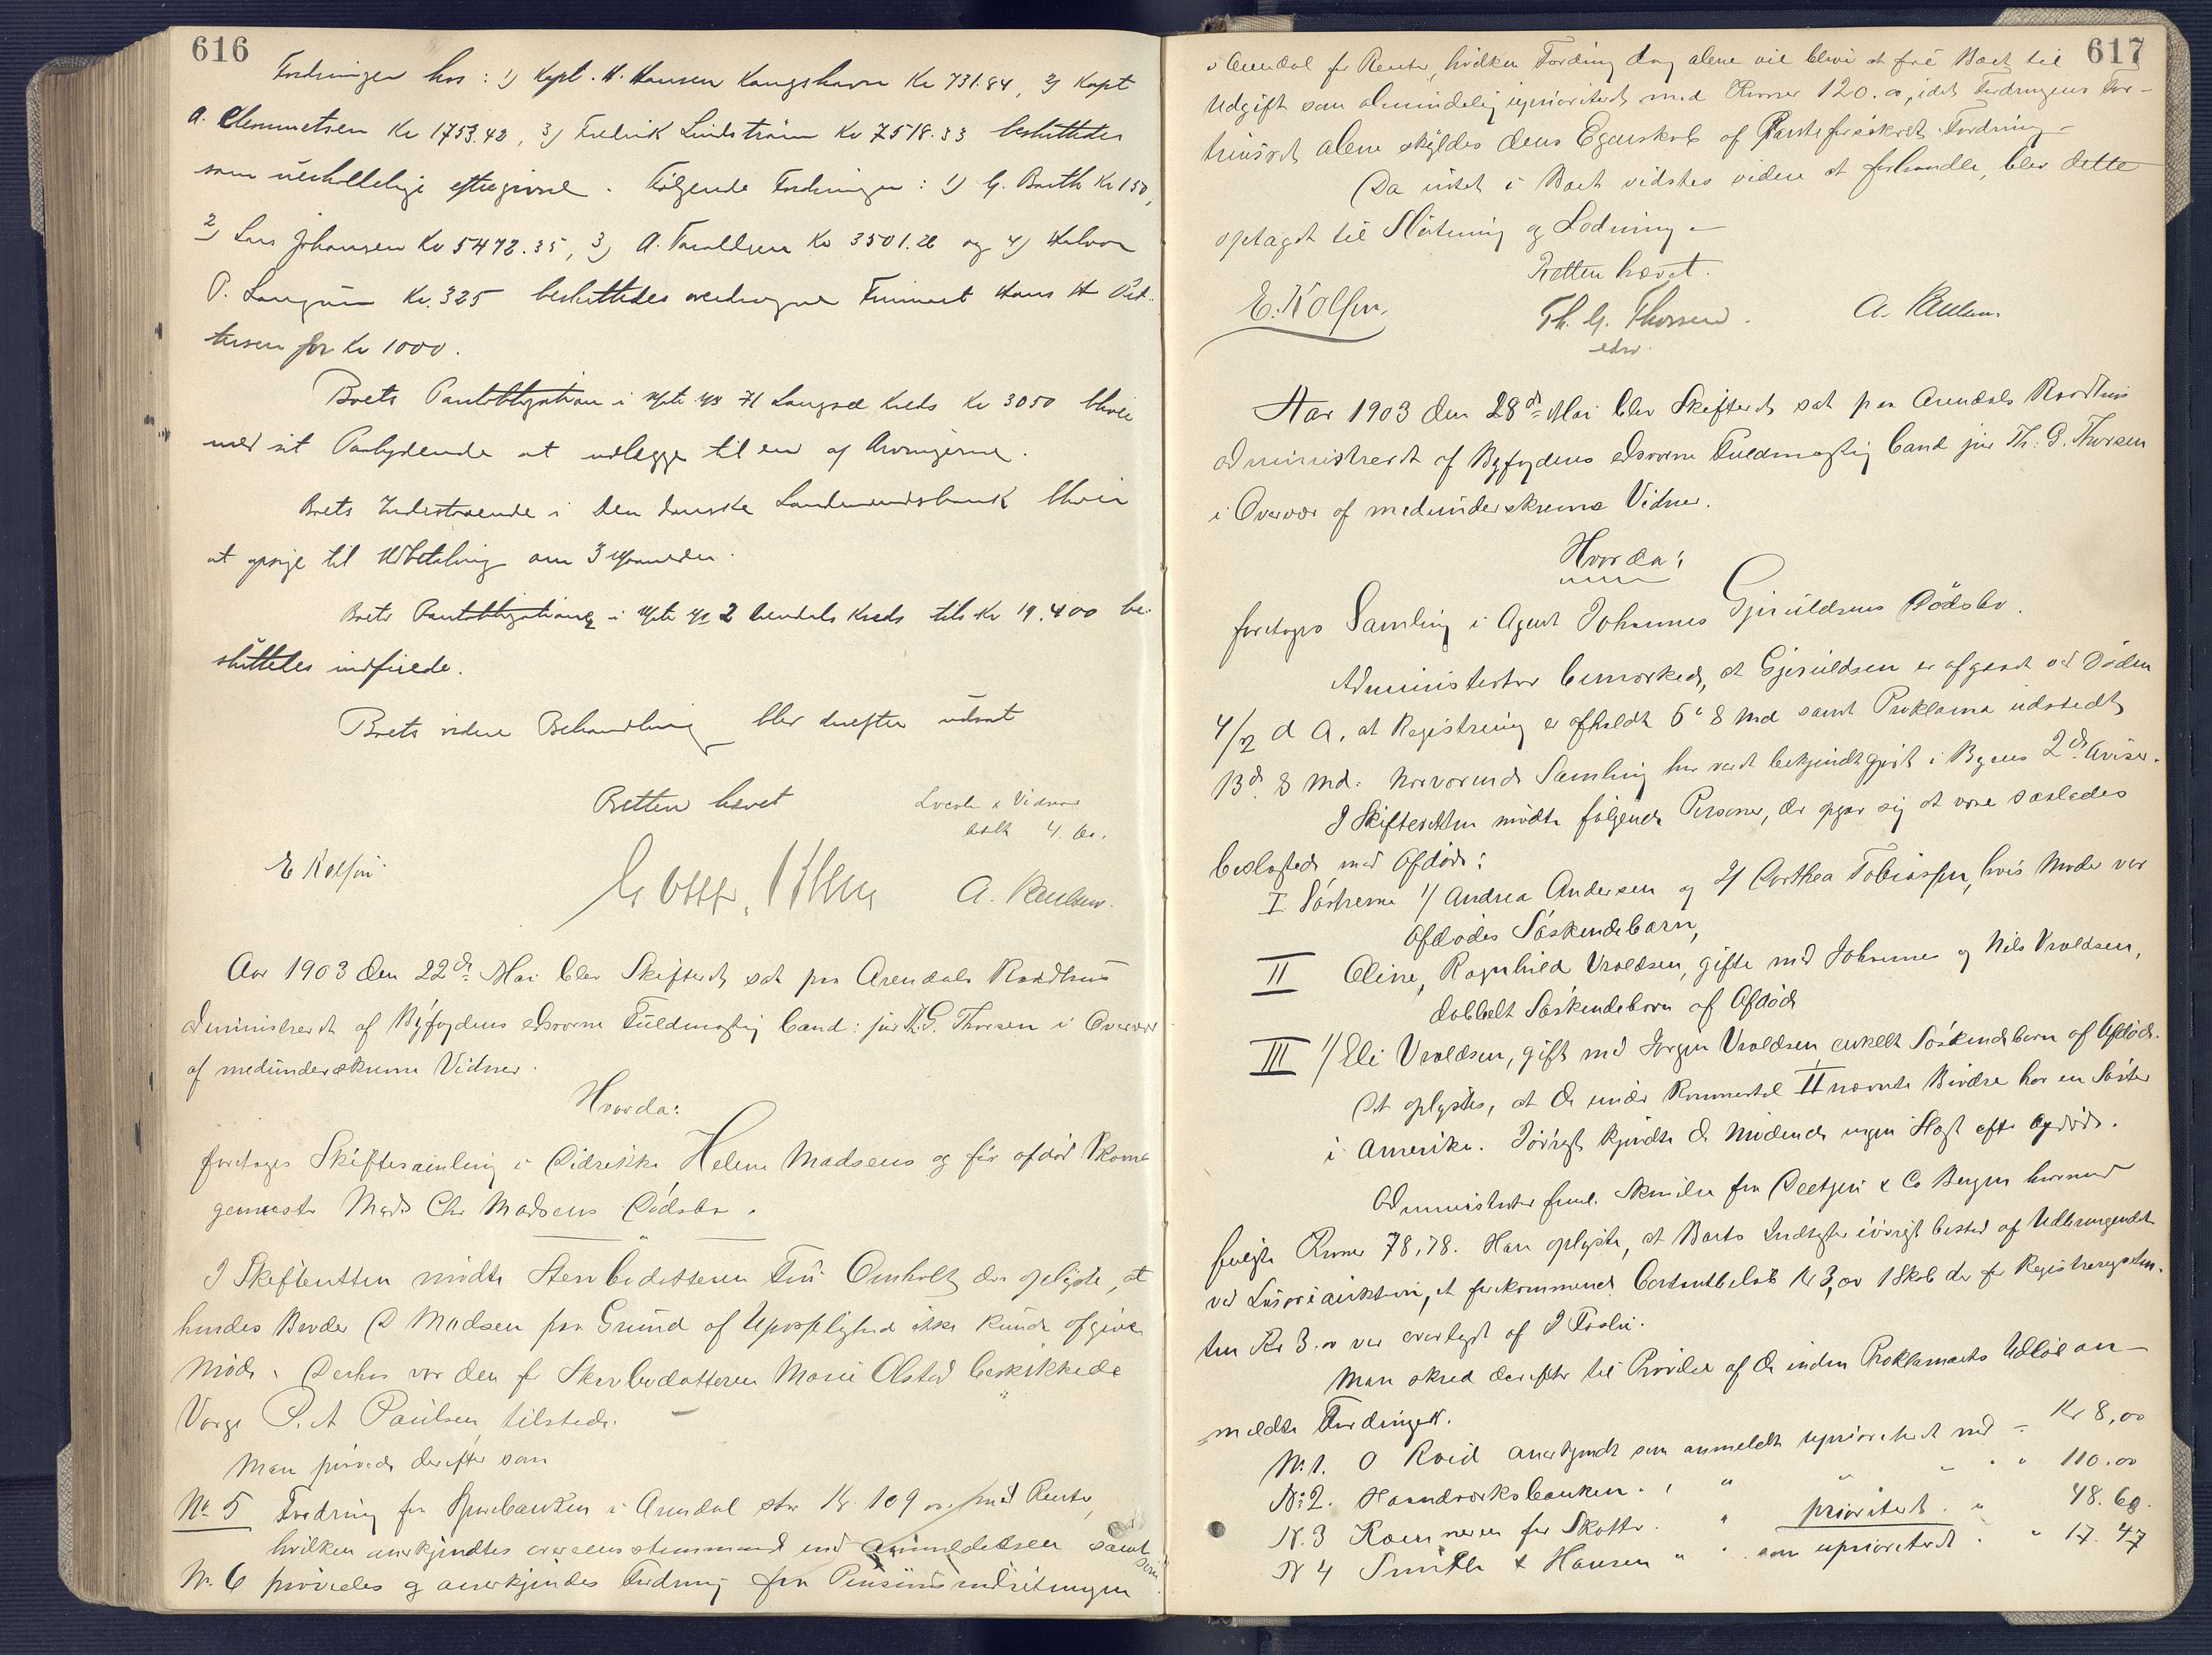 616
Fordringer hos: 1) Kapt. H. Hansen Kongshavn Kr 731.84, 2) Kapt
A. Clemmetsen Kr 1753.42, 3) Fredrik Lindström Kr 7518.33 besluttedes
som uerholdelige eftergivne. Følgende Fordringer: 1) G. Barth Kr 150,
2) Lars Johansen Kr 5472.35, 3) A. Kr 3501.26 og 4) Halvor
P. Kr. 325 besluttedes overdragne Hans H
tersen for Kr 1000.
Boets Pantobligation i No 71 Kreds Kr 3050 bliver
med sit Paalydende at udlægge til en af Arvingerne.
Boets Indestaaende i Den danske Landmandsbank bliver
at opsige til Udbetaling om 3 Maaneder.
Boets Pantobligation i No 2 Arendals Kreds Kr 19.400 be-
sluttedes indfriede.
Boets videre Behandling blev derefter udsat
Retten hævet
Vidner
4. Kr.
E Kolfsen
A. Paulsen.
Aar 1903 den 22de Mai blev Skifteret sat paa Arendals Raadhus
administreret af Byfogdens edsvorne Fuldmægtig Cand: jur Th. G. Thorsen i Overvær
af medunderskrevne Vidner.
Hvorda:
foretoges Skiftesamling i Didrikke Helene Madsens og før afdød
Mads Chr Madsens Dødsbo.
I Skifteretten mødte Stervbodatteren Fru Omholt der oplyste, at
hendes Broder D Madsen paa Grund af Upasselighed ikke kunde afgive
Møde. Derhos var den for Stervbodatteren Marie Olstad beskikkede
Værge P. A Paulsen, tilstede.
Man prøvede derefter som
No. 5 Fordring fra Sparebanken i Arendal stor Kr. 109 med Renter,
hvilken anerkjendtes overensstemmende med Anmeldelsen samt som
No. 6 prøvedes og anerkjendes Fordring fra Pensionsindretningen
617
i Arendal for Renter, hvilken Fordring dog alene vil blive at føre Boet til
Udgift som almindelig uprioriteret med Kroner 120.00, idet Fordringens For-
trinsret alene skyldes dens Egenskab af Panteforsikret Fordring.
Da intet i Boet vidstes videre at forhandle, blev dette
optaget til Slutning og Lodning.
Retten hævet.
E. Kolfsen.
Th. G. Thorsen.
edsv.
A. Paulsen.
Aar 1903 den 28de Mai blev Skifteret sat paa Arendals Raadhus
administreret af Byfogdens edsvorne Fuldmægtig Cand jur Th. G. Thorsen
i Overvær af medunderskrevne Vidner.
Hvorda:
foretoges Samling i Agent Johannes Gjeruldsens Dødsbo.
Administrator bemærkede, at Gjeruldsen er afgaaet ved Døden
4/2 d A, at Registrering er afholdt 5 s Md samt Proklama udstedt
13de s Md. Nærværende Samling har været bekjendtgjort i Byens 2de Aviser.
I Skifteretten mødte følgende Personer, der opgav sig at være saaledes
beslægtede med Afdøde:
I Søstrene 1/ Andrea Andersen og 2/ Dorthea Tobiassen, hvis Moder var
Afdødes Søskendebarn,
II Oline, Ragnhild Vraldsen, gifte med Johannes og Nils Vraldsen,
dobbelt Søskendebarn af Afdøde
III 1/ Eli Vraldsen, gift med Jørgen Vraldsen enkelt Søskendebarn af Afdøde.
Det oplystes, at de under Rommertal II nævnte Brødre har en Søster
i Amerika. Iøvrigt kjendte de Mødende ingen Slægt efter Afdøde.
Administrator freml. Skrivelse fra & Co Bergen hvormed
fulgte Kroner 78,78. Han oplyste, at Boets Indtægter iøvrigt bestod af Udbringendet
ved Løsøreauktion, at forekommende Contantbeløb Kr 3,00 1 Skab der for Registreringssum-
men Kr 3.00 var overtaget af
Man skred derefter til Prøvelse af de inden Proklamaets Udløb an-
meldte Fordinger.
No 1. O Roed anerkjendt som anmeldt uprioriteret med - Kr 8,00
No: 2. Haandværksbanken. " " " " 110.00
N. 3 Kæmneren for Skatter. " prioriteret. " 48.60.
N 4 Smith & Hansen " " som uprioriteret. " 17.47